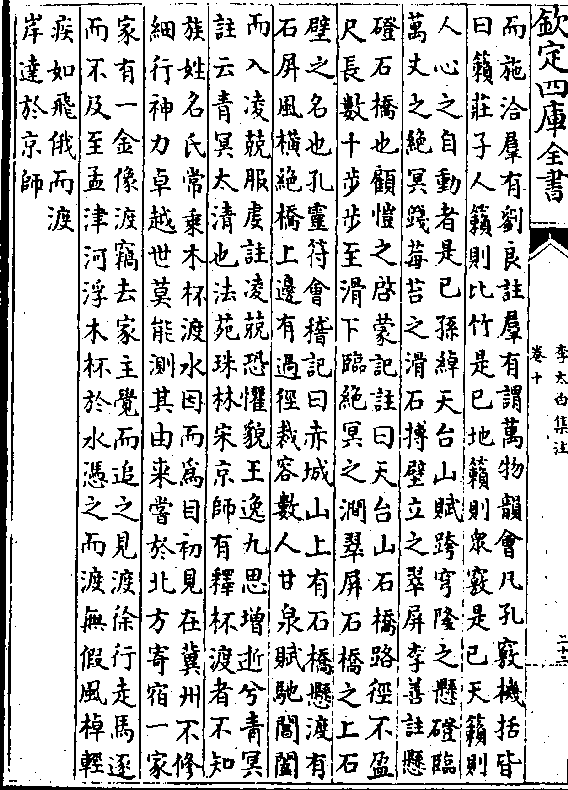 欽定四庫全書
李太白集注
卷十
而施洽羣有劉良註羣有謂萬物韻會凡孔竅機括皆
曰籟莊子人籟則比竹是已地籟則衆竅是已天籟則
人心之自動者是已孫綽天台山賦跨穹隆之懸磴臨
萬丈之絶冥踐莓苔之滑石搏壁立之翠屏李善註懸
磴石橋也顧愷之啓蒙記註曰天台山石橋路徑不盈
尺長數十步步至滑下臨絶冥之澗翠屏石橋之上石
壁之名也孔靈符會稽記曰赤城山上有石橋懸渡有
石屏風橫絶橋上邊有過徑裁容數人甘泉賦馳閶闔
而入凌兢服虔註凌兢恐懼貌王逸九思增逝兮青冥
註云青冥太清也法苑珠林宋京師有釋杯渡者不知
族姓名氏常乗木杯渡水因而為目初見在冀州不修
細行神力卓越世莫能測其由來嘗於北方寄宿一家
家有一金像渡竊去家主覺而追之見渡徐行走馬逐
而不及至孟津河浮木杯於水憑之而渡無假風棹輕
疾如飛俄而渡
岸達於京師